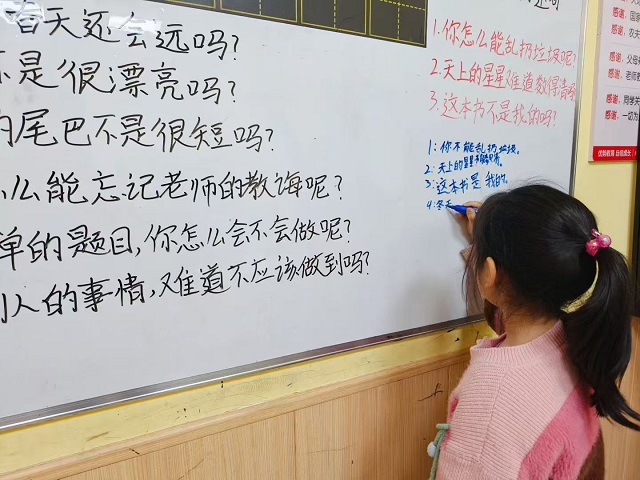 春天还会远吗?
不是很漂亮吗?
的尾巴不是很短吗?
么能忘记老师的教诲呢?
单的题目,你怎么会不会做呢?
人的事情,难道不应该做到吗?
句
1.你怎么能乱扔垃圾呢?
2.天上的星星难道数得清吗
3.这本书不是我的吗?
1:你不能乱扔垃圾。
2:天上的星星
3:这本书是我的。
4:冬天
感谢,
感谢,国家
感谢,农夫
感谢,父母
感谢,老师
感谢,同学
感谢,一切